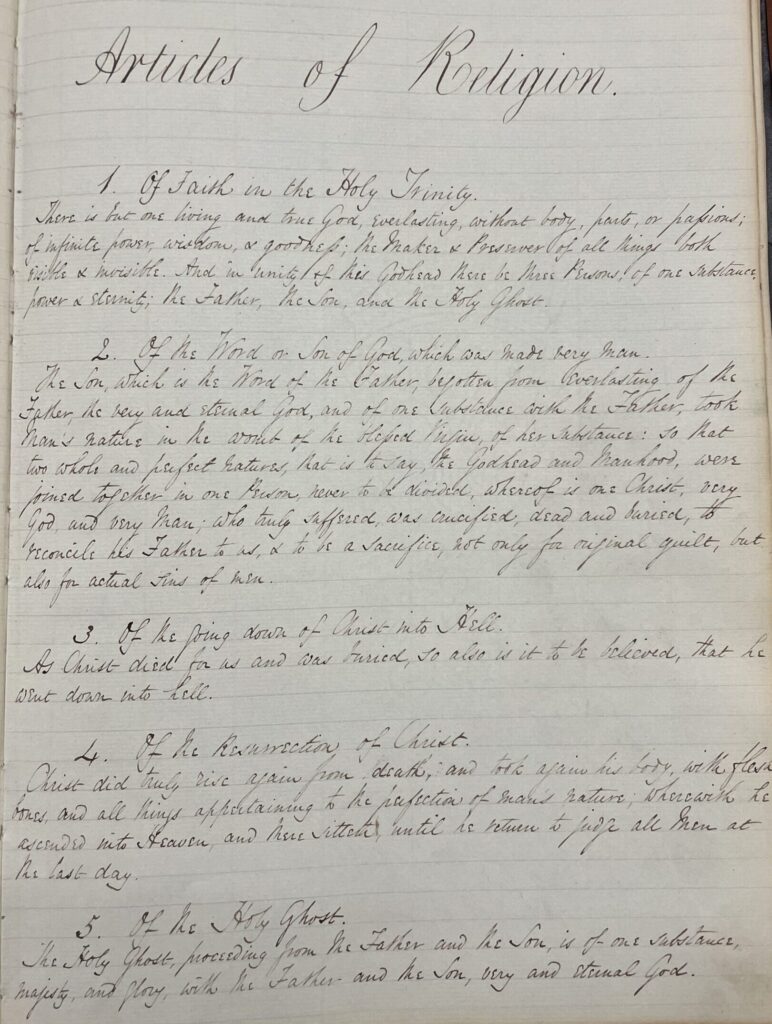 Articles of Religion.
1. Of Faith in the Holy Trinity.
There is but one living and true God, everlasting, without body, parts, or passions;
of infinite power, wisdom, & goodness; the Maker & Preserver of all things both
visible & invisible. And in unity of this Godhead there be three Persons, of one substance,
power & eternity; the Father, the Son, and the Holy Ghost.
2. Of the Word or Son of God, which was made very man.
The Son, which is the Word of the Father, begotten from Everlasting of the
Father, the very and eternal God, and of one substance with the Father, took
Man's nature in the womb of the blessed Virgin, of her substance: so that
two whole and perfect natures, that is to say, the Godhead and Manhood, were
joined together in one Person, never to be divided, whereof is one Christ, very
God, and very Man; who truly suffered, was crucified, dead and buried, to
reconcile his Father to us, & to be a sacrifice, not only for original guilt, but
also for actual sins of men.
3. Of the going down of Christ into Hell.
As Christ died for us and was buried, so also is it to be believed, that he
went down into hell.
4. Of the Resurrection of Christ.
Christ did truly rise again from death, and took again his body, with flesh
bones, and all things appertaining to the perfection of man's nature; wherewith he
ascended into Heaven, and there sitteth, until he return to judge all Men at
the last day.
5. Of the Holy Ghost.
The Holy Ghost, proceeding from the Father and the Son, is of one substance,
majesty, and glory, with the Father and the Son, very and eternal God.